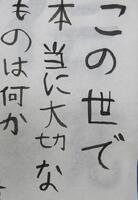 この世で
本当に大切な
ものは何か